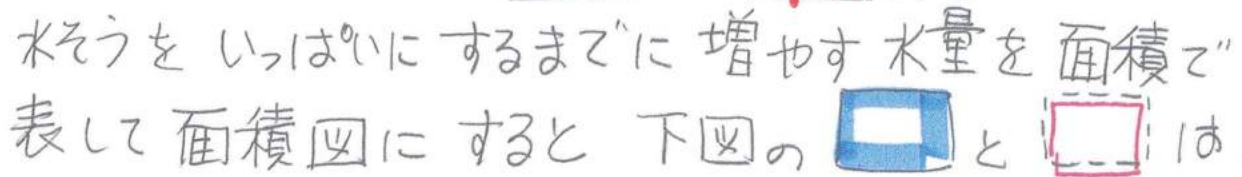 水そうを いっぱいに するまでに 増やす 水量を 面積で
表して 面積図に すると 下図の と は